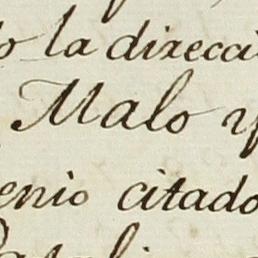 o la direcci
Malo y
enio citado